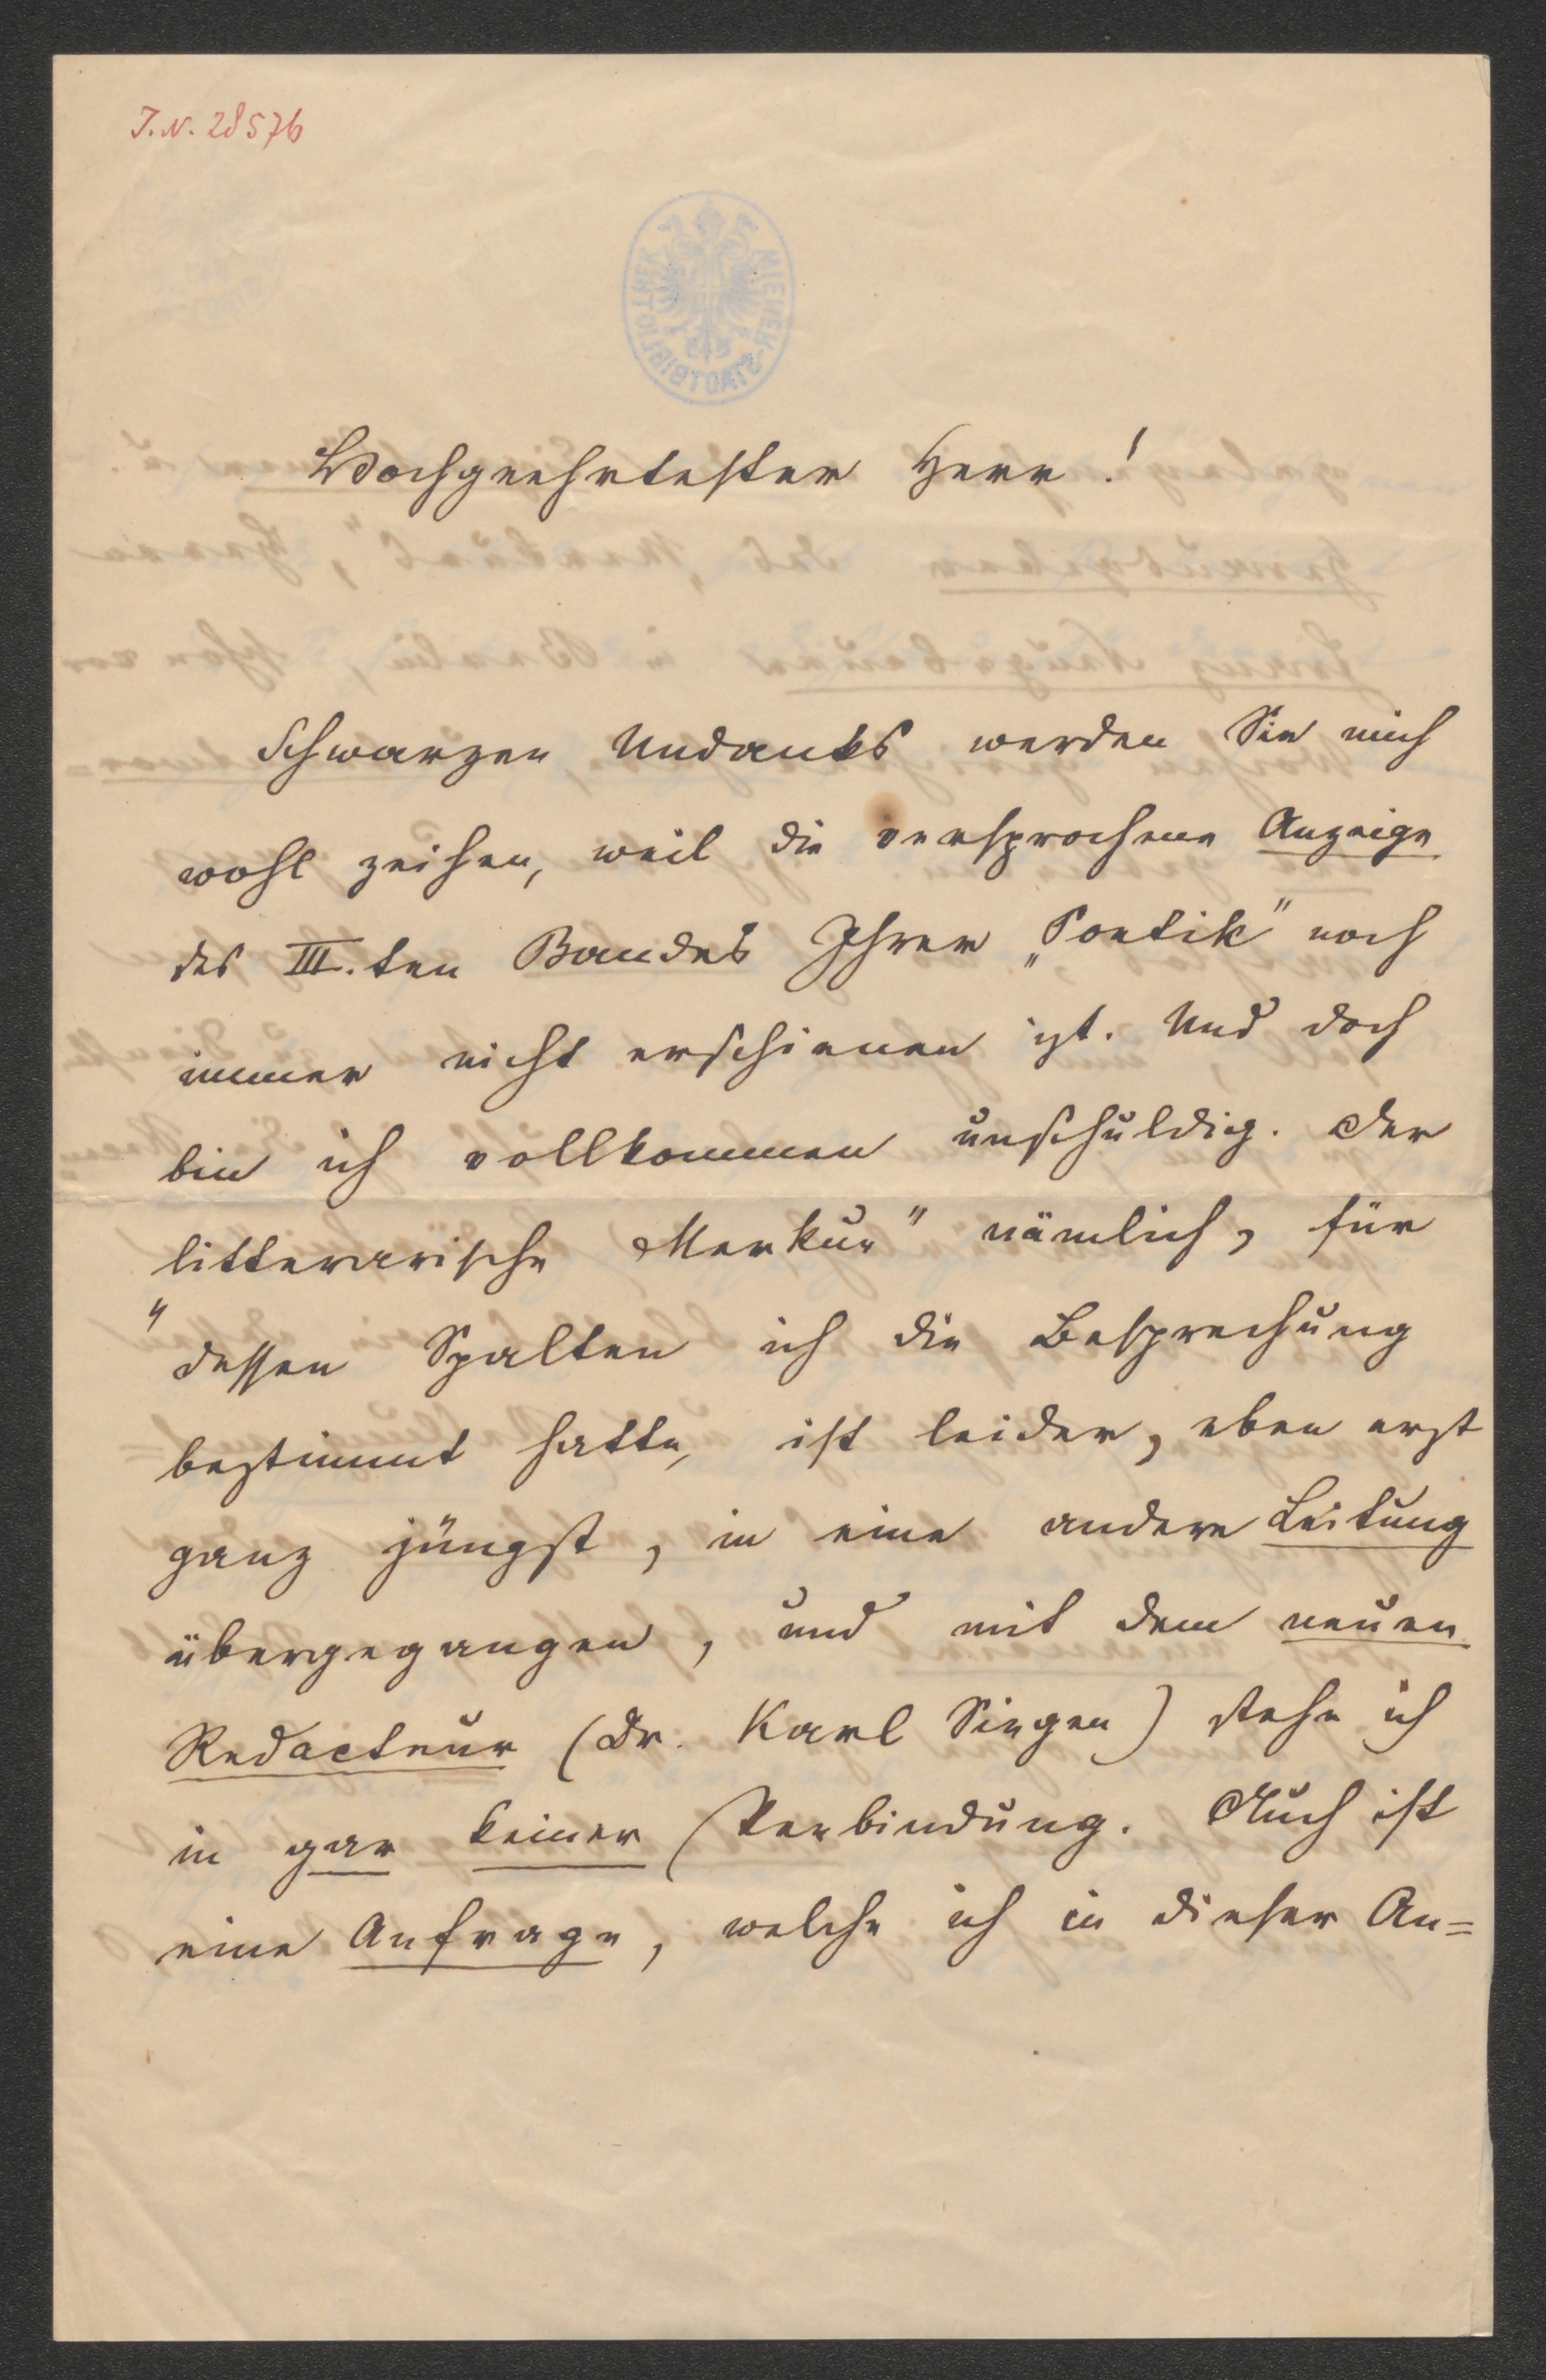 J.N. 28576
WIENER STADTBIBLIOTHEK
Hochgeehrtester Herr!
Schwarzen Undanks werden Sie mich
wohl zeihen, weil die versprochene Anzeige
des III.ten Bandes Ihrer „Poetik" noch
immer nicht erschienen ist. Und doch
bin ich vollkommen unschuldig. Der
„litterarische Merkur" nämlich, für
dessen Spalten ich die Besprechung
bestimmt hatte, ist leider, eben erst
ganz jüngst, in eine andere Leitung
übergegangen, und mit dem neuen
Redacteur (Dr. Karl Siegen) stehe ich
in gar keiner Verbindung. Auch ist
eine Anfrage, welche ich in dieser An=